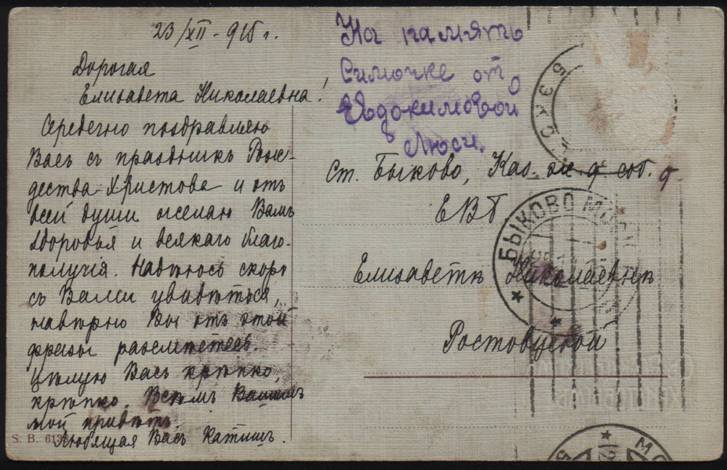 23/XII - 915 г.
Дорогая
Елизавета Николаевна!
Сердечно поздравляю
Васъ съ праздник. Рож-
дества Христова и отъ
всей души желаю Вамъ
здоровья и всякаго благо-
получiя. Надѣюсь скоро
съ Вами увидѣться,
навѣрно Вы отъ этой
фразы разсмѣетесь.
Цѣлую Васъ крѣпко,
крѣпко. Всѣмъ Вашимъ
мой привѣтъ.
Любящая Васъ Катишъ.
S. B. 613
На память
Симочке от
Евдокимовой
Люси.
Ст. Быково, Каз. ж. д. соб. д.
ЕВБ
Елизаветѣ Николаевнѣ
Ростовцевой
БЫКОВО МОСК